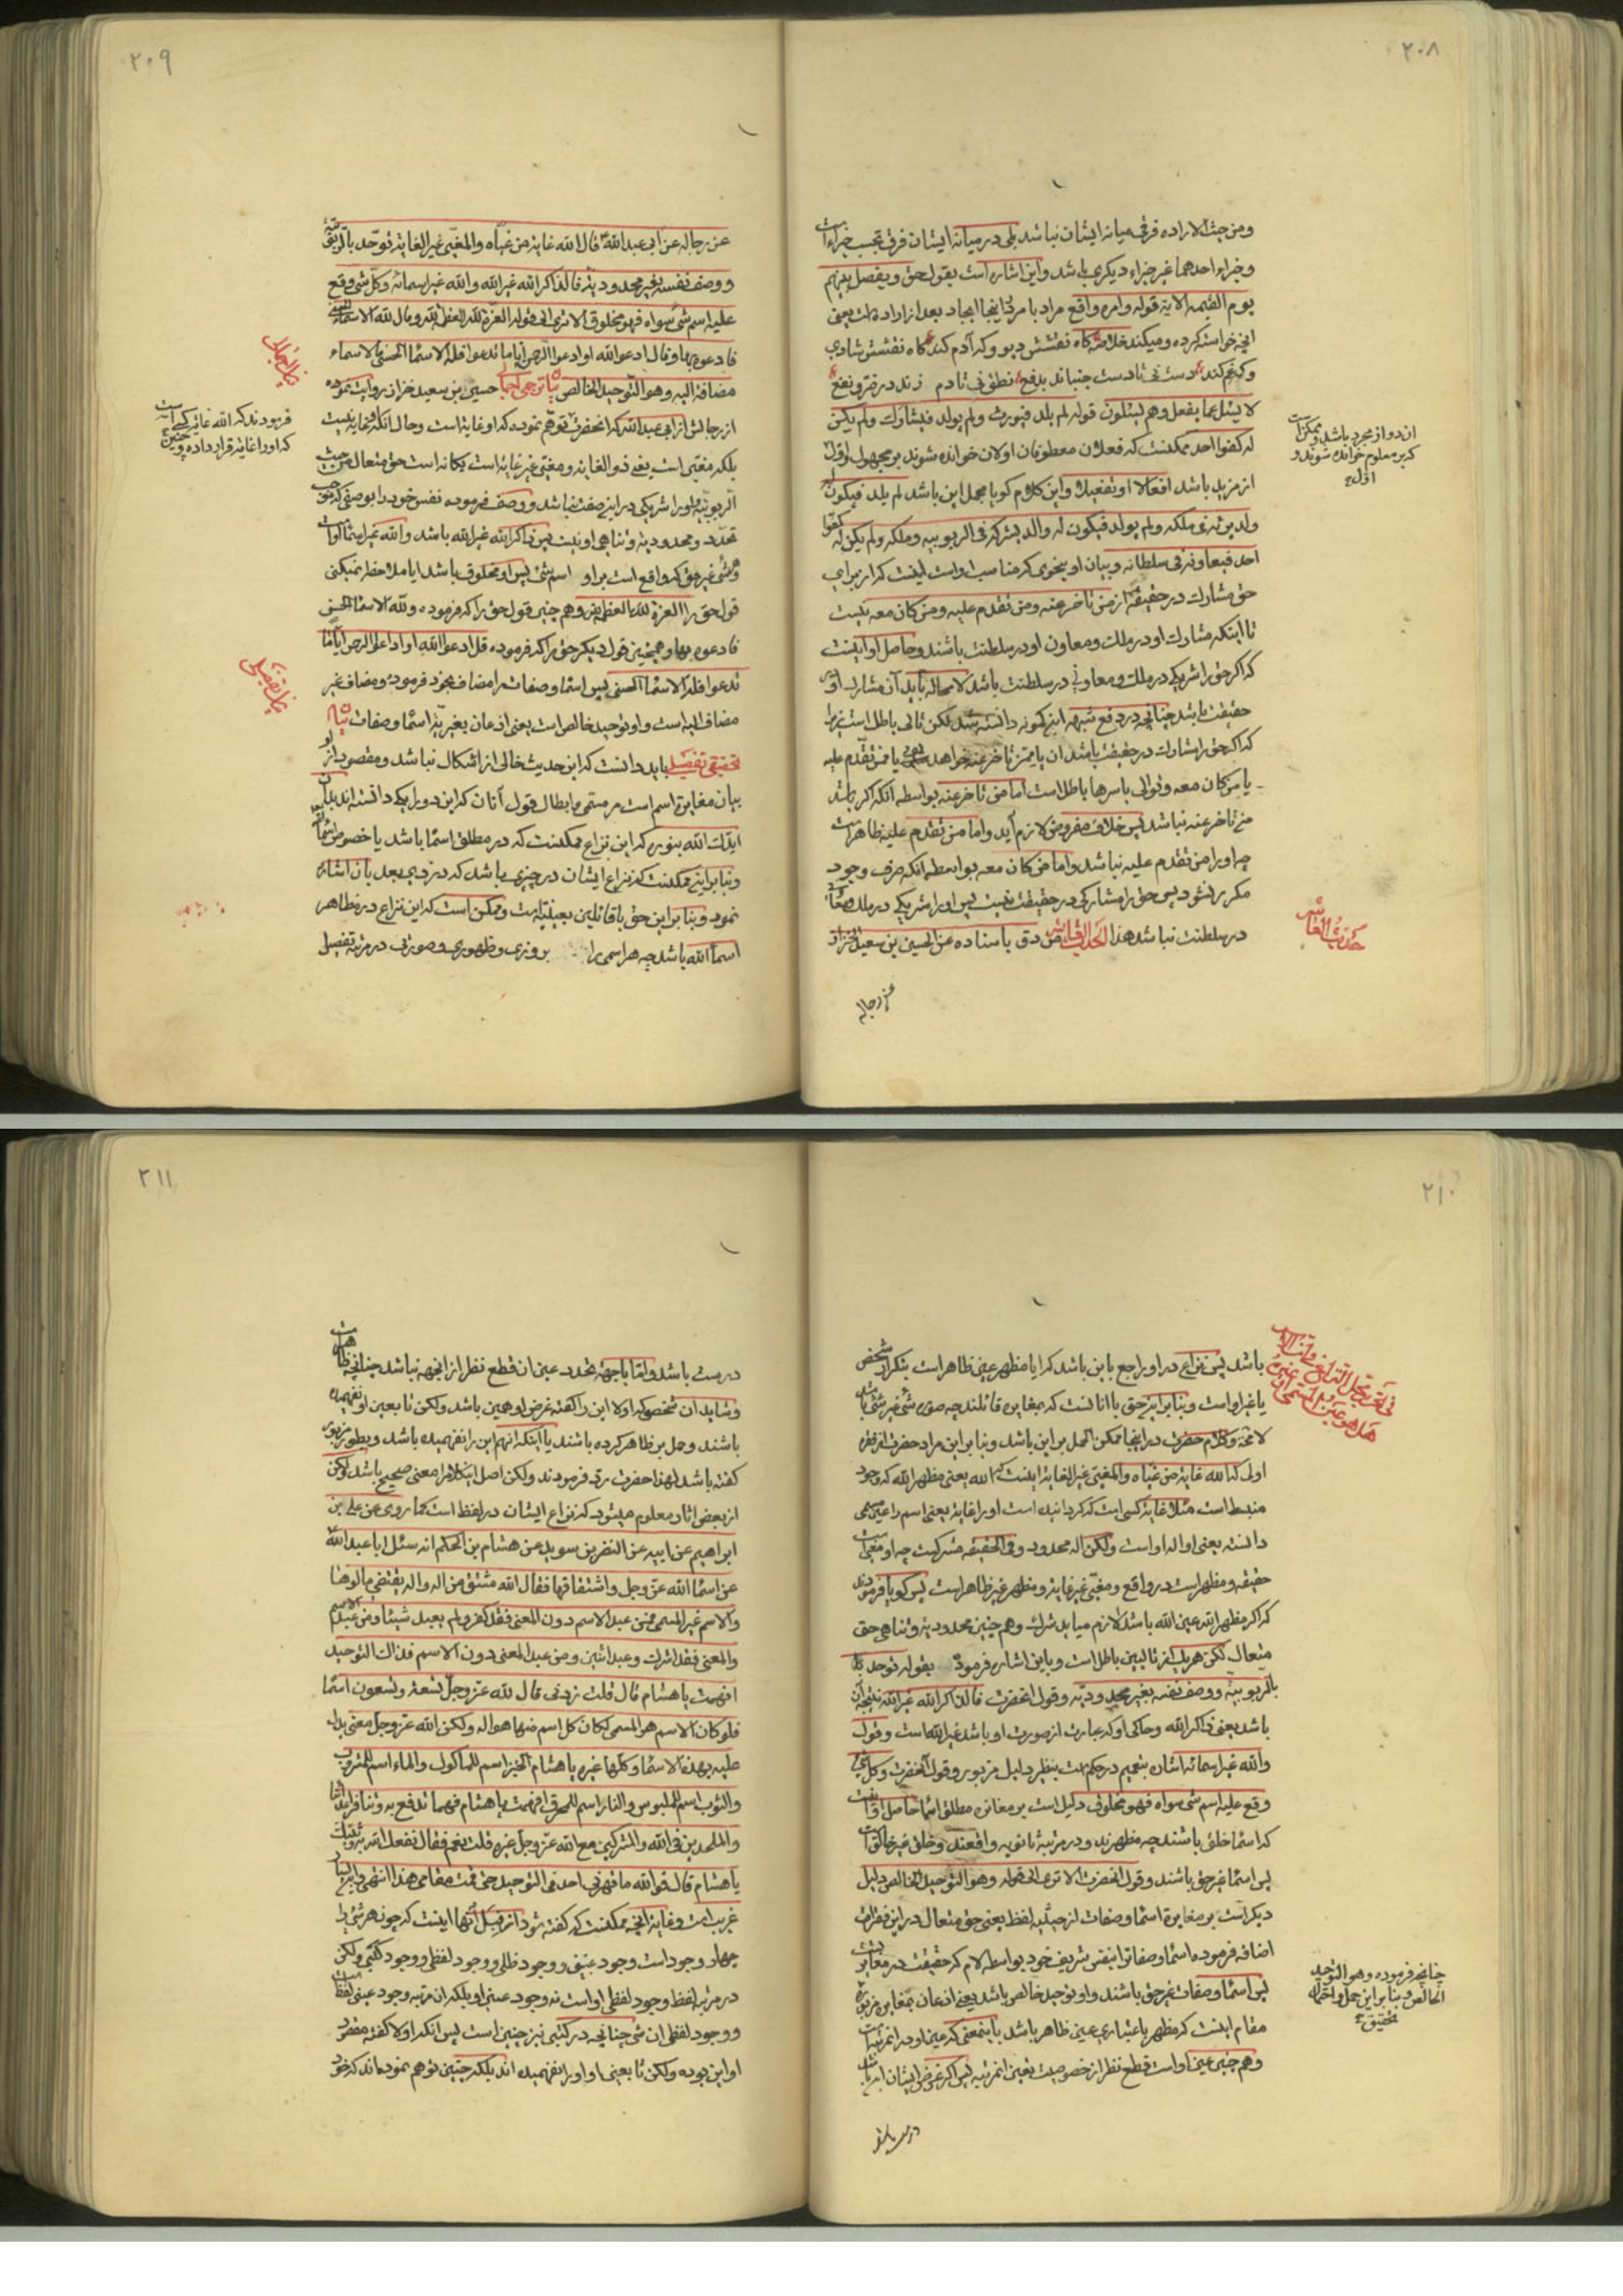 ۲۰۸
ومن حیث الاراده فرقی میانه ایشان نباشد بلی در میانه ایشان فرق بحسب جزاء است
وجزاء احدهما غیر جزاء دیکری باشد واین اشاره است بقول حق ویفصل بینهم
یوم القیمه الایة قوله وامره واقع مراد بامر در اینجا ایجاد بعد از اراده است یعنی
انچه خواسته کرده ومیکند خلاصه کاه نقشش دیو وکه آدم کند کاه نقشش شادی
وکه غم کند دست نی تا دست جنباند بدفع نطق نی تا دم زند در ضر ونفع
لا یسئل عما یفعل وهم یسئلون قوله لم یلد فیورث ولم یولد فیشارک ولم یکن
له کفوا احد ممکنست که فعلان معطوفان اولان خوانده شوند بر مجهول اول
از مزید باشد افعالا او تفعیلا واین کلام کویا مجمل این باشد لم یلد فیکون له
ولد یرثه فی ملکه ولم یولد فیکون له والد یشرکه فی الربوبیه وملکه ولم یکن له کفوا
احد فیعاونه فی سلطانه وبیان او بنحوی که مناسب است اینست که از برای
حق مشارک در حقیقة از من تاخر عنه ومن تقدم علیه ومن کان معه نیست
تا اینکه مشارک او در ملک ومعاون او در سلطنت باشند وحاصل او اینست
که اکر حق را شریکی در ملک ومعاونی در سلطنت باشد لا محاله باید آن مشارک او در
حقیقت باشد چنانچه در دفع شبهه ابن کمونه دانسته شد لکن تالی باطل است زیرا
که اکر حق را مشارک در حقیقت باشد ان یا من تاخر عنه خواهد بود یا من تقدم علیه
یا من کان معه وتوالی باسرها باطل است اما من تاخر عنه بواسطه انکه اکر باشد
من تاخر عنه نباشد پس خلاف مفروض لازم آید واما من تقدم علیه ظاهر است
چه او را من تقدم علیه نباشد واما من کان معه بواسطه انکه صرف وجود
مکرر نشود پس حق را مشارکی در حقیقت نیست پس او را شریکی در ملک ومعاونی
در سلطنت نباشد هذا الحدیث العاشر صدق باسناده عن الحسین بن سعید الخزاز
عن رجاله
ان دو از مجرد باشد وممکن است
که بر معلوم خوانده شوند و
اول
حدیث العاشر
۲۰۹
عن رجاله عن ابی عبدالله قال الله غایة من غیاه والمغیی غیر الغایة توحد بالربوبیة
ووصف نفسه بغیر محدودیة فالذاکر الله غیر الله والله غیر اسمائه وکل شی وقع
علیه اسم شی سواه فهو مخلوق الا تری الی قوله العزة لله العظمة لله وقال لله الاسماء الحسنی
فادعوه بها وقال ادعوا الله او ادعوا الرحمن ایا ما تدعوا فله الاسماء الحسنی فالاسماء
مضافة الیه وهو التوحید الخالص بیان ترجمی اجمالی حسین بن سعید خزاز روایت نموده
از رجالش از ابی عبدالله که انحضرت توهم نموده که او غایة است وحال انکه غایة نیست
بلکه مغیی است یعنی ذو الغایة ومغیی غیر غایة است یکانه است حق متعال من حیث
الربوبیة او را شریکی در این صفت نباشد ووصف فرموده نفس خود را بوصفی که من حیث
تحدد ومحدودیة وتناهی او نیست پس ذاکر الله غیر الله باشد والله غیر اسماء او است
وشئ غیر حق که واقع است بر او اسم شئ پس او مخلوق باشد ایا ملاحظه نمیکنی
قول حق را العزة لله العظمة لله وهم چنین قول حق را که فرموده ولله الاسماء الحسنی
فادعوه بها وهمچنین قول دیکر حق را که فرموده قل ادعوا الله او ادعوا الرحمن ایا ما
تدعوا فله الاسماء الحسنی پس اسما وصفات را مضاف بخود فرموده ومضاف غیر
مضاف الیه است واو توحید خالص است یعنی اذعان بغیریة اسما وصفات بیان
تحقیقی تفصیلی باید دانست که این حدیث خالی از اشکال نباشد ومقصود از او
بیان مغایرة اسم است مر مسمی وابطال قول آنان که این دو را یکی دانسته اند بلی
ایدک الله بنوره که این نزاع ممکنست که در مطلق اسما باشد یا خصوص اسماء الله
وبنا بر این ممکنست که نزاع ایشان در چیزی باشد که در ذیل بعد بان اشاره
نمود وبنا بر این حق با قائلین بعینیة است وممکن است که این نزاع در مظاهر
اسماء الله باشد چه هر اسمی را بروزی وظهوری وصورتی در مرتبه تفصیل
بیان اجمالی
فرمودند که الله غایة کسی است
که او را غایة قرار داده وچنین
بیان تفصیلی
۲۱۰
باشد پس نزاع در او راجع باین باشد که ایا مظهر عین ظاهر است بنکر از شخص
یا غیر او است وبنا بر این حق با انانست که بمغایرة قائلند چه صورة شئ غیر شئ باشد
لا محة وکلام حضرت در اینجا ممکن الحمل بر این باشد وبنا بر این مراد حضرت از فقره
اولی که الله غایة من غیاه والمغیی غیر الغایة اینست که الله یعنی مظهر الله که وجود
منبسط است مثلا غایة کسی است که کردانیده است او را غایة یعنی اسم را عین مسمی
دانسته یعنی او اله او است ولکن اله محدود وفی الحقیقه مشرکست چه او مغیی است
حقیقه ومظهر است در واقع ومغیی غیر غایة ومظهر غیر ظاهر است پس کویا فرمودند
که اکر مظهر الله عین الله باشد لازم میاید شرک وهم چنین محدودیة وتناهی حق
متعال لکن هر یک از تالیین باطل است وباین اشاره فرموده بقوله توحد
بالربوبیة ووصف نفسه بغیر محدودیة وقول انحضرت فالذاکر الله غیر الله نتیجه ان
باشد یعنی ذاکر الله وحاکی او که عبارت از صورت او باشد غیر الله است وقول
والله غیر اسمائه اشاره بتعمیم در حکمست بنظیر دلیل مزبور وقول انحضرت وکل شئ
وقع علیه اسم شی سواه فهو مخلوق دلیل است بر مغایرة مطلق اسما حاصل او اینست
که اسما خلق باشند چه مظهرند ودر مرتبة ثانویه واقعند وخلق غیر خالق است
پس اسما غیر حق باشند وقول انحضرت الا تری الی قوله وهو التوحید الخالص دلیل
دیکر است بر مغایرة اسما وصفات از حیثیه لفظ یعنی حق متعال در این فقرات
اضافه فرموده اسما وصفات را بنفس شریف خود بواسطه لام که حقیقت در مغایرتست
پس اسما وصفات غیر حق باشند واو توحید خالص باشد یعنی اذعان بمغایرة مزبوره
مقام اینست که مظهر باعتباری عین ظاهر باشد باینمعنی که عین او در انمرتبه است
وهم چنین عین او است قطع نظر از خصوصیت تعین انمرتبه پس اکر غرض ایشان این باشد
درست باشد
هل هو عین المسمی او غیره
چنانچه فرموده وهو التوحید
الخالص وبنا بر این حمل واحتمال
تحقیق
۲۱۱
درست باشد واما با جهة تحدد عین ان قطع نظر از انجهه نباشد چنانچه ظاهر است
وشاید ان شخص که اولا این را کفته غرض او همین باشد ولکن تابعین او نفهمیده
باشند وحمل بر ظاهر کرده باشند یا اینکه انهم این را نفهمیده باشد وبطور مزبور
کفته باشد لهذا حضرت رد فرمودند ولکن اصل اینکلام را معنی صحیح باشد ولکن
از بعض اثار معلوم میشود که نزاع ایشان در لفظ است کما روی عن علی بن
ابراهیم عن ابیه عن النضر بن سوید عن هشام بن الحکم انه سئل ابا عبدالله
عن اسماء الله عز وجل واشتقاقها فقال الله مشتق من اله واله یقتضی مالوها
والاسم غیر المسمی فمن عبد الاسم دون المعنی فقد کفر ولم یعبد شیئا ومن عبد الاسم
والمعنی فقد اشرک وعبد اثنین ومن عبد المعنی دون الاسم فذاک التوحید
افهمت یا هشام قال قلت زدنی قال لله عز وجل تسعة وتسعون اسما
فلو کان الاسم هو المسمی لکان کل اسم منها هو اله ولکن الله عز وجل معنی یدل
علیه بهذه الاسماء وکلها غیره یا هشام الخبز اسم للماکول والماء اسم للمشروب
والثوب اسم للملبوس والنار اسم للمحرق افهمت یا هشام فهما تدفع به وتنافر اعدائنا
والملحدین فی الله والمشرکین مع الله عز وجل غیره قلت نعم فقال نفعک الله به وثبتک
یا هشام قال فوالله ما قهرنی احد فی التوحید حتی قمت مقامی هذا انتهی
غریب است وغایة انچه ممکنست که کفته شود از قبل آنها اینست که چون هر شئ را
چهار وجود است وجود عینی ووجود ظلی ووجود لفظی ووجود کتبی ولکن
در مرتبه لفظ وجود لفظی او است نه وجود عینی او بلکه ان مرتبه وجود عینی لفظ است
ووجود لفظی ان شی چنانچه در کتبی نیز چنین است پس انکه اولا کفته مقصود
او این بوده ولکن تابعین او او را نفهمیده اند بلکه چنین توهم نموده اند که خود